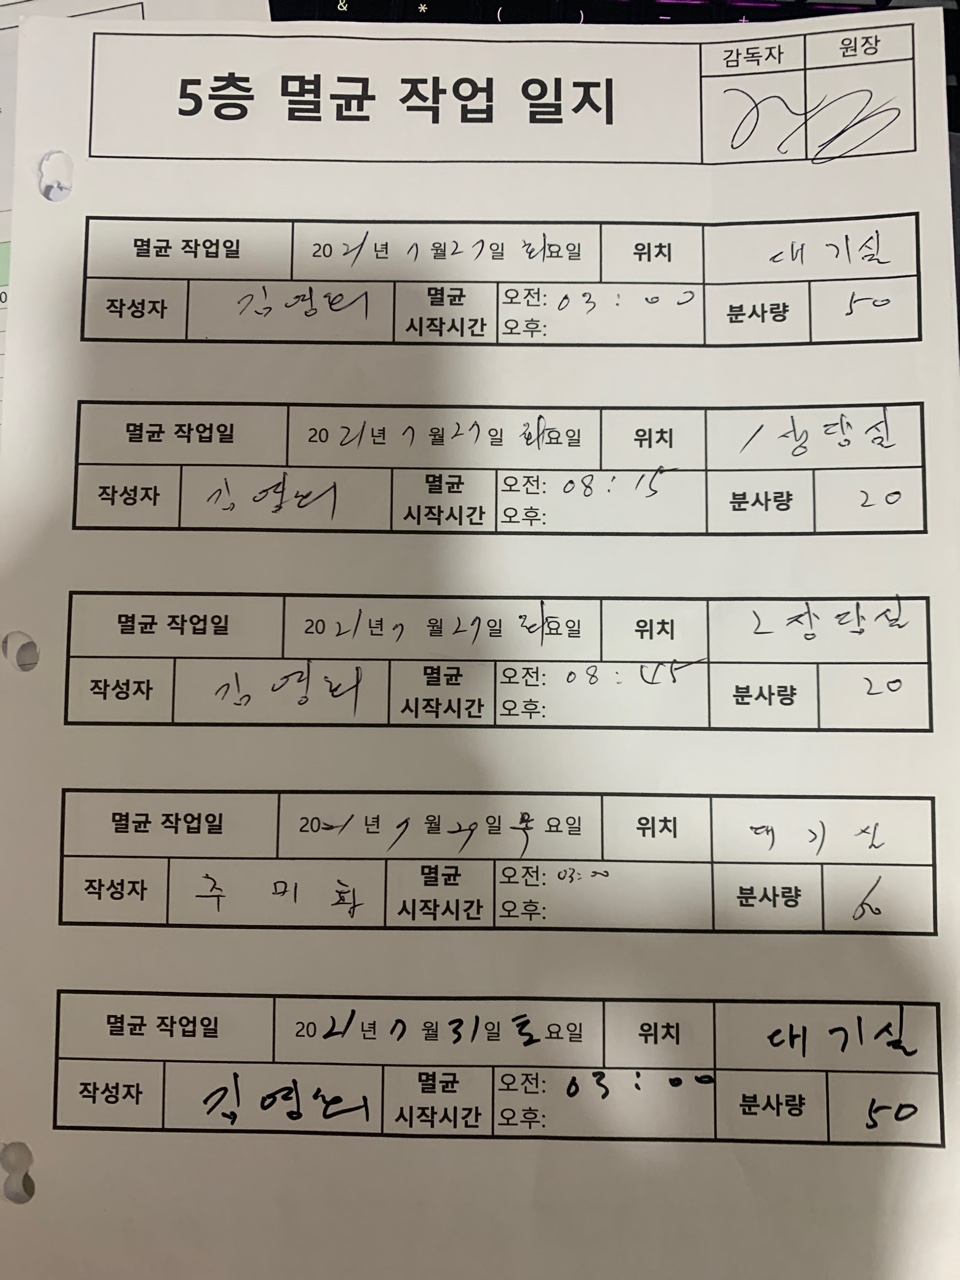 5층 멸균 작업 일지
감독자 원장
멸균 작업일 2021년 7월27일 화요일 위치 대기실
작성자 김영희 멸균 시작시간 오전: 03:00 오후: 분사량 50
멸균 작업일 2021년 7월27일 화요일 위치 1상담실
작성자 김영희 멸균 시작시간 오전: 08:15 오후: 분사량 20
멸균 작업일 2021년 7월27일 화요일 위치 2상담실
작성자 김영희 멸균 시작시간 오전: 08:45 오후: 분사량 20
멸균 작업일 2021년 7월29일 목요일 위치 대기실
작성자 주미 멸균 시작시간 오전: 03:00 오후: 분사량
멸균 작업일 2021년 7월31일 토요일 위치 대기실
작성자 김영희 멸균 시작시간 오전: 03:00 오후: 분사량 50